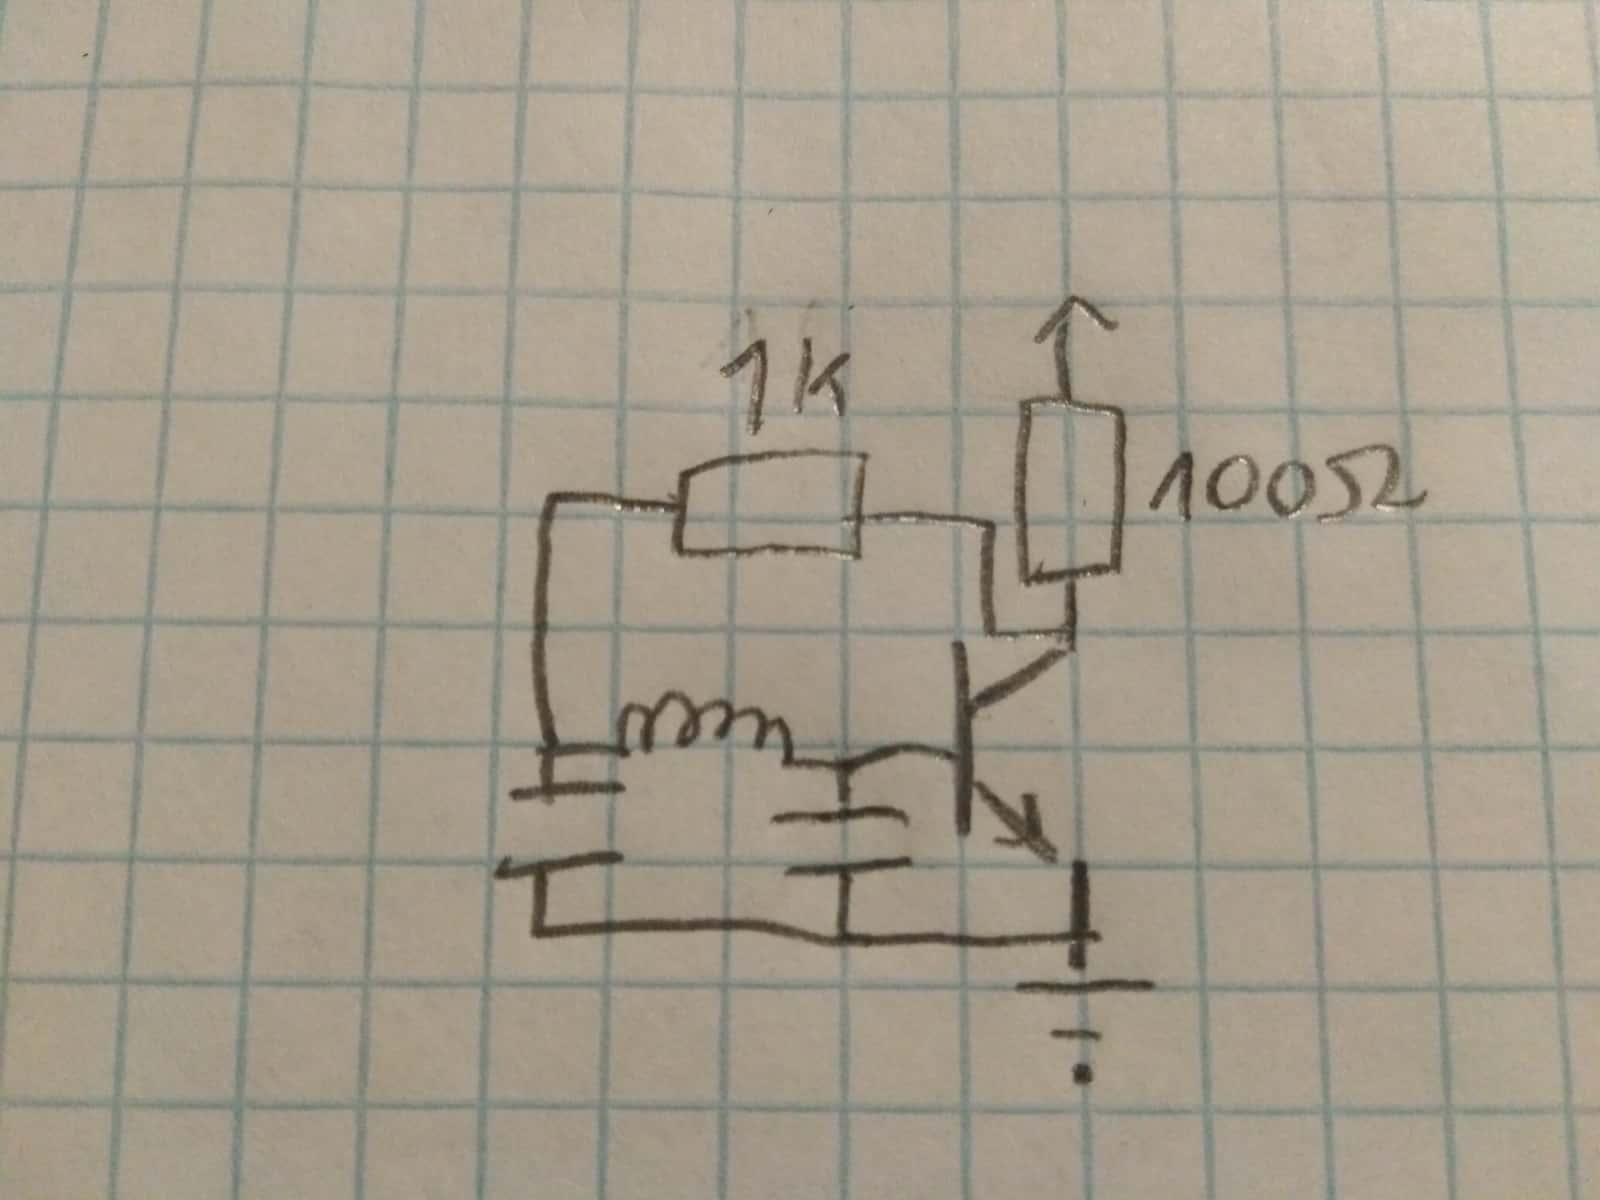 1k
100Ω